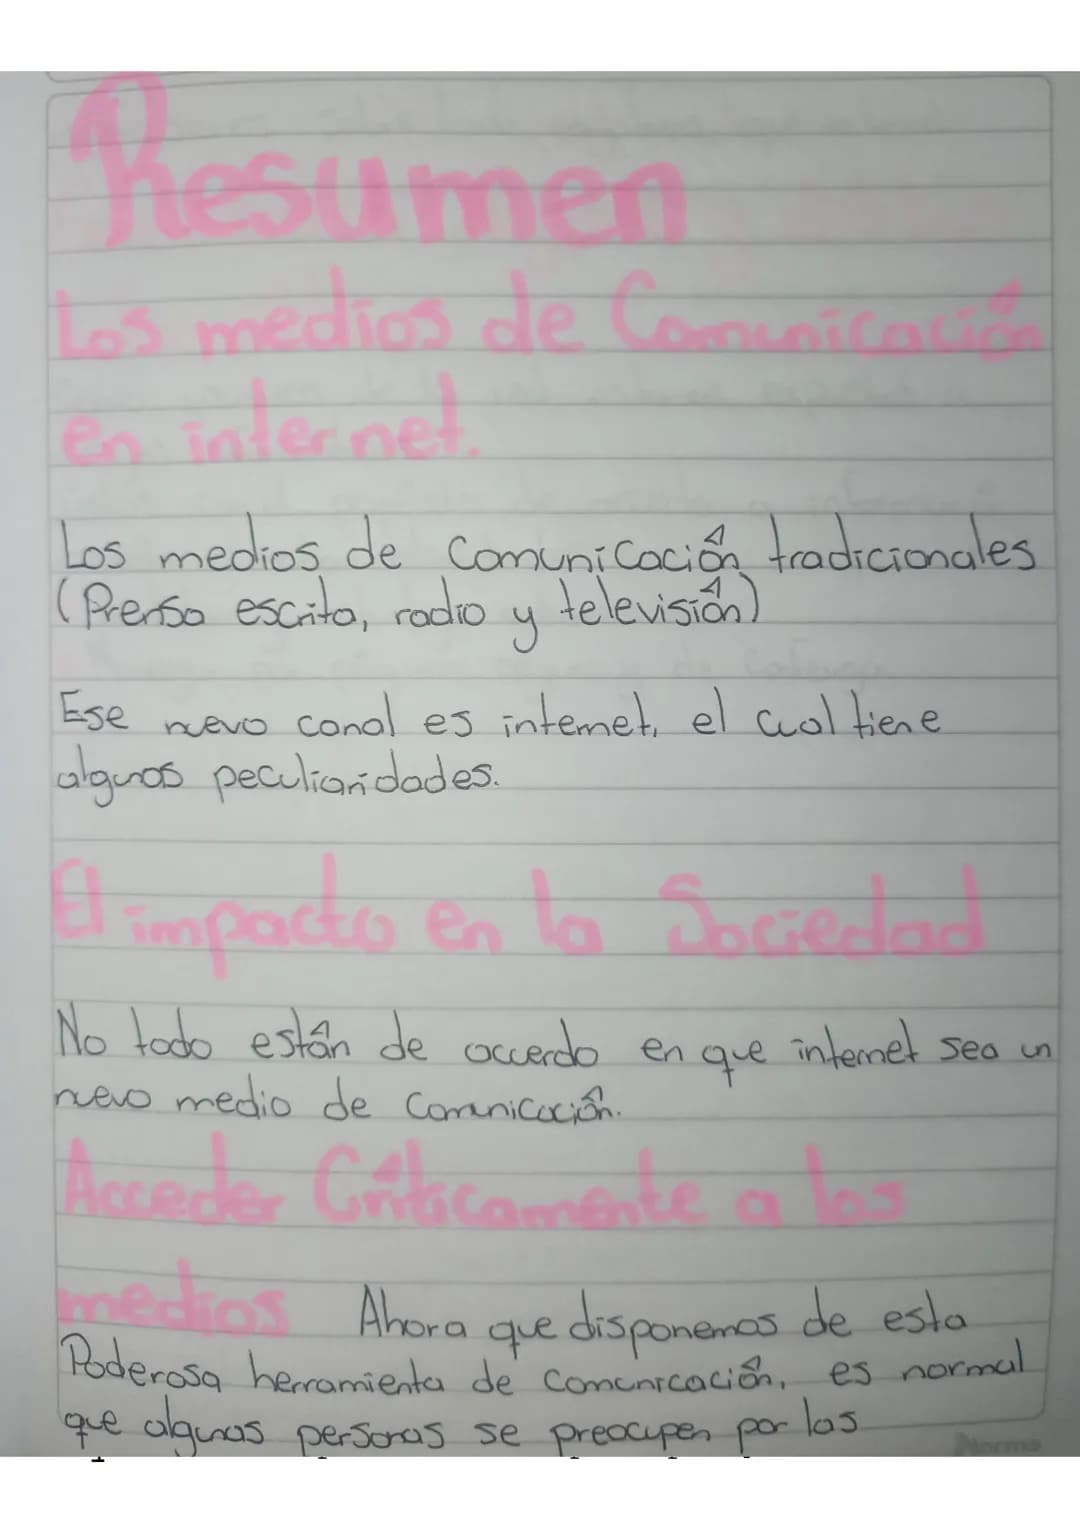 Resumen
Los medios de Comunicación
en internet.
Los medios de Comunicación tradicionales
(Prensa escrita, radio y televisión)
Ese nuevo canal es internet, el cual tiene
algunas peculiaridades.
El impacto en la Sociedad
No todo están de accerdo en que internet sea un
nuevo medio de Comunicación.
Acceder Críticamente a los
medios Ahora que disponemos de esta
Poderosa herramienta de comunicación, es normal
que algunas personas se preocupen por las
Norma